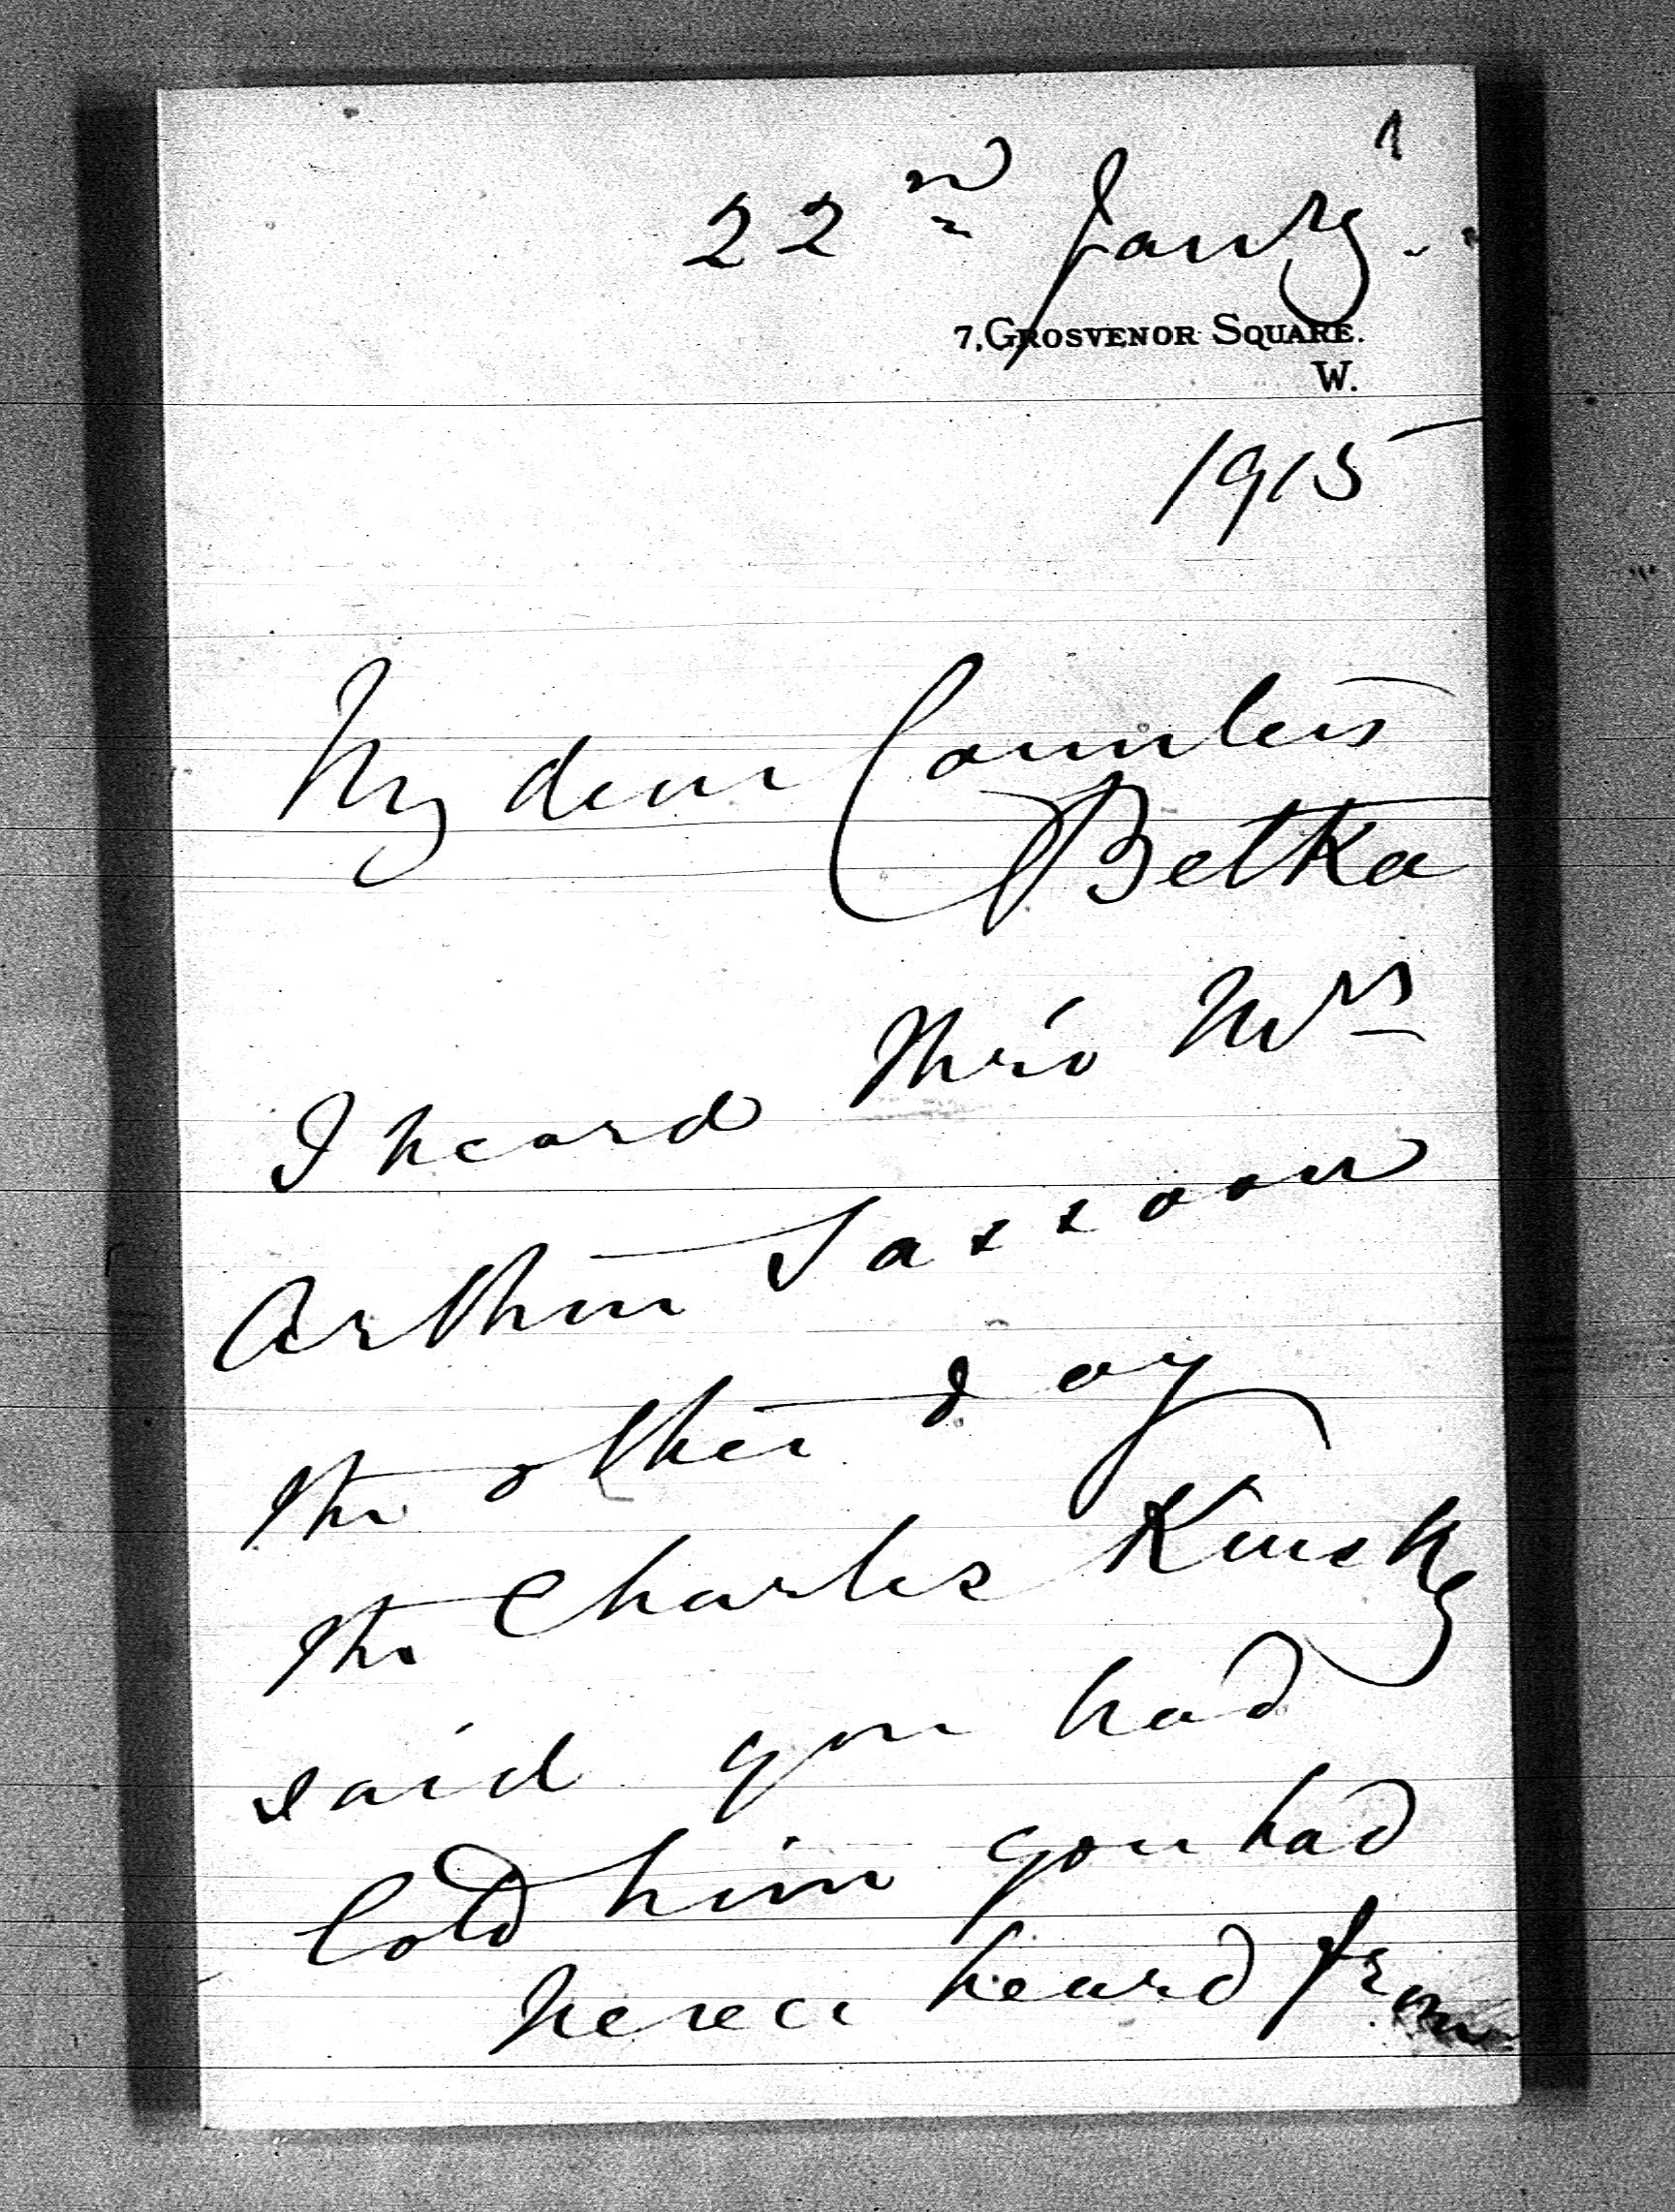 1
22nd Jany.
7, GROSVENOR SQUARE.
W.
1915
My dear Countess
Betka
I heard thro' Mrs
Arthur Sassoon
the other day
tho Charles Kinsky
said you had
told him you had
never heard from